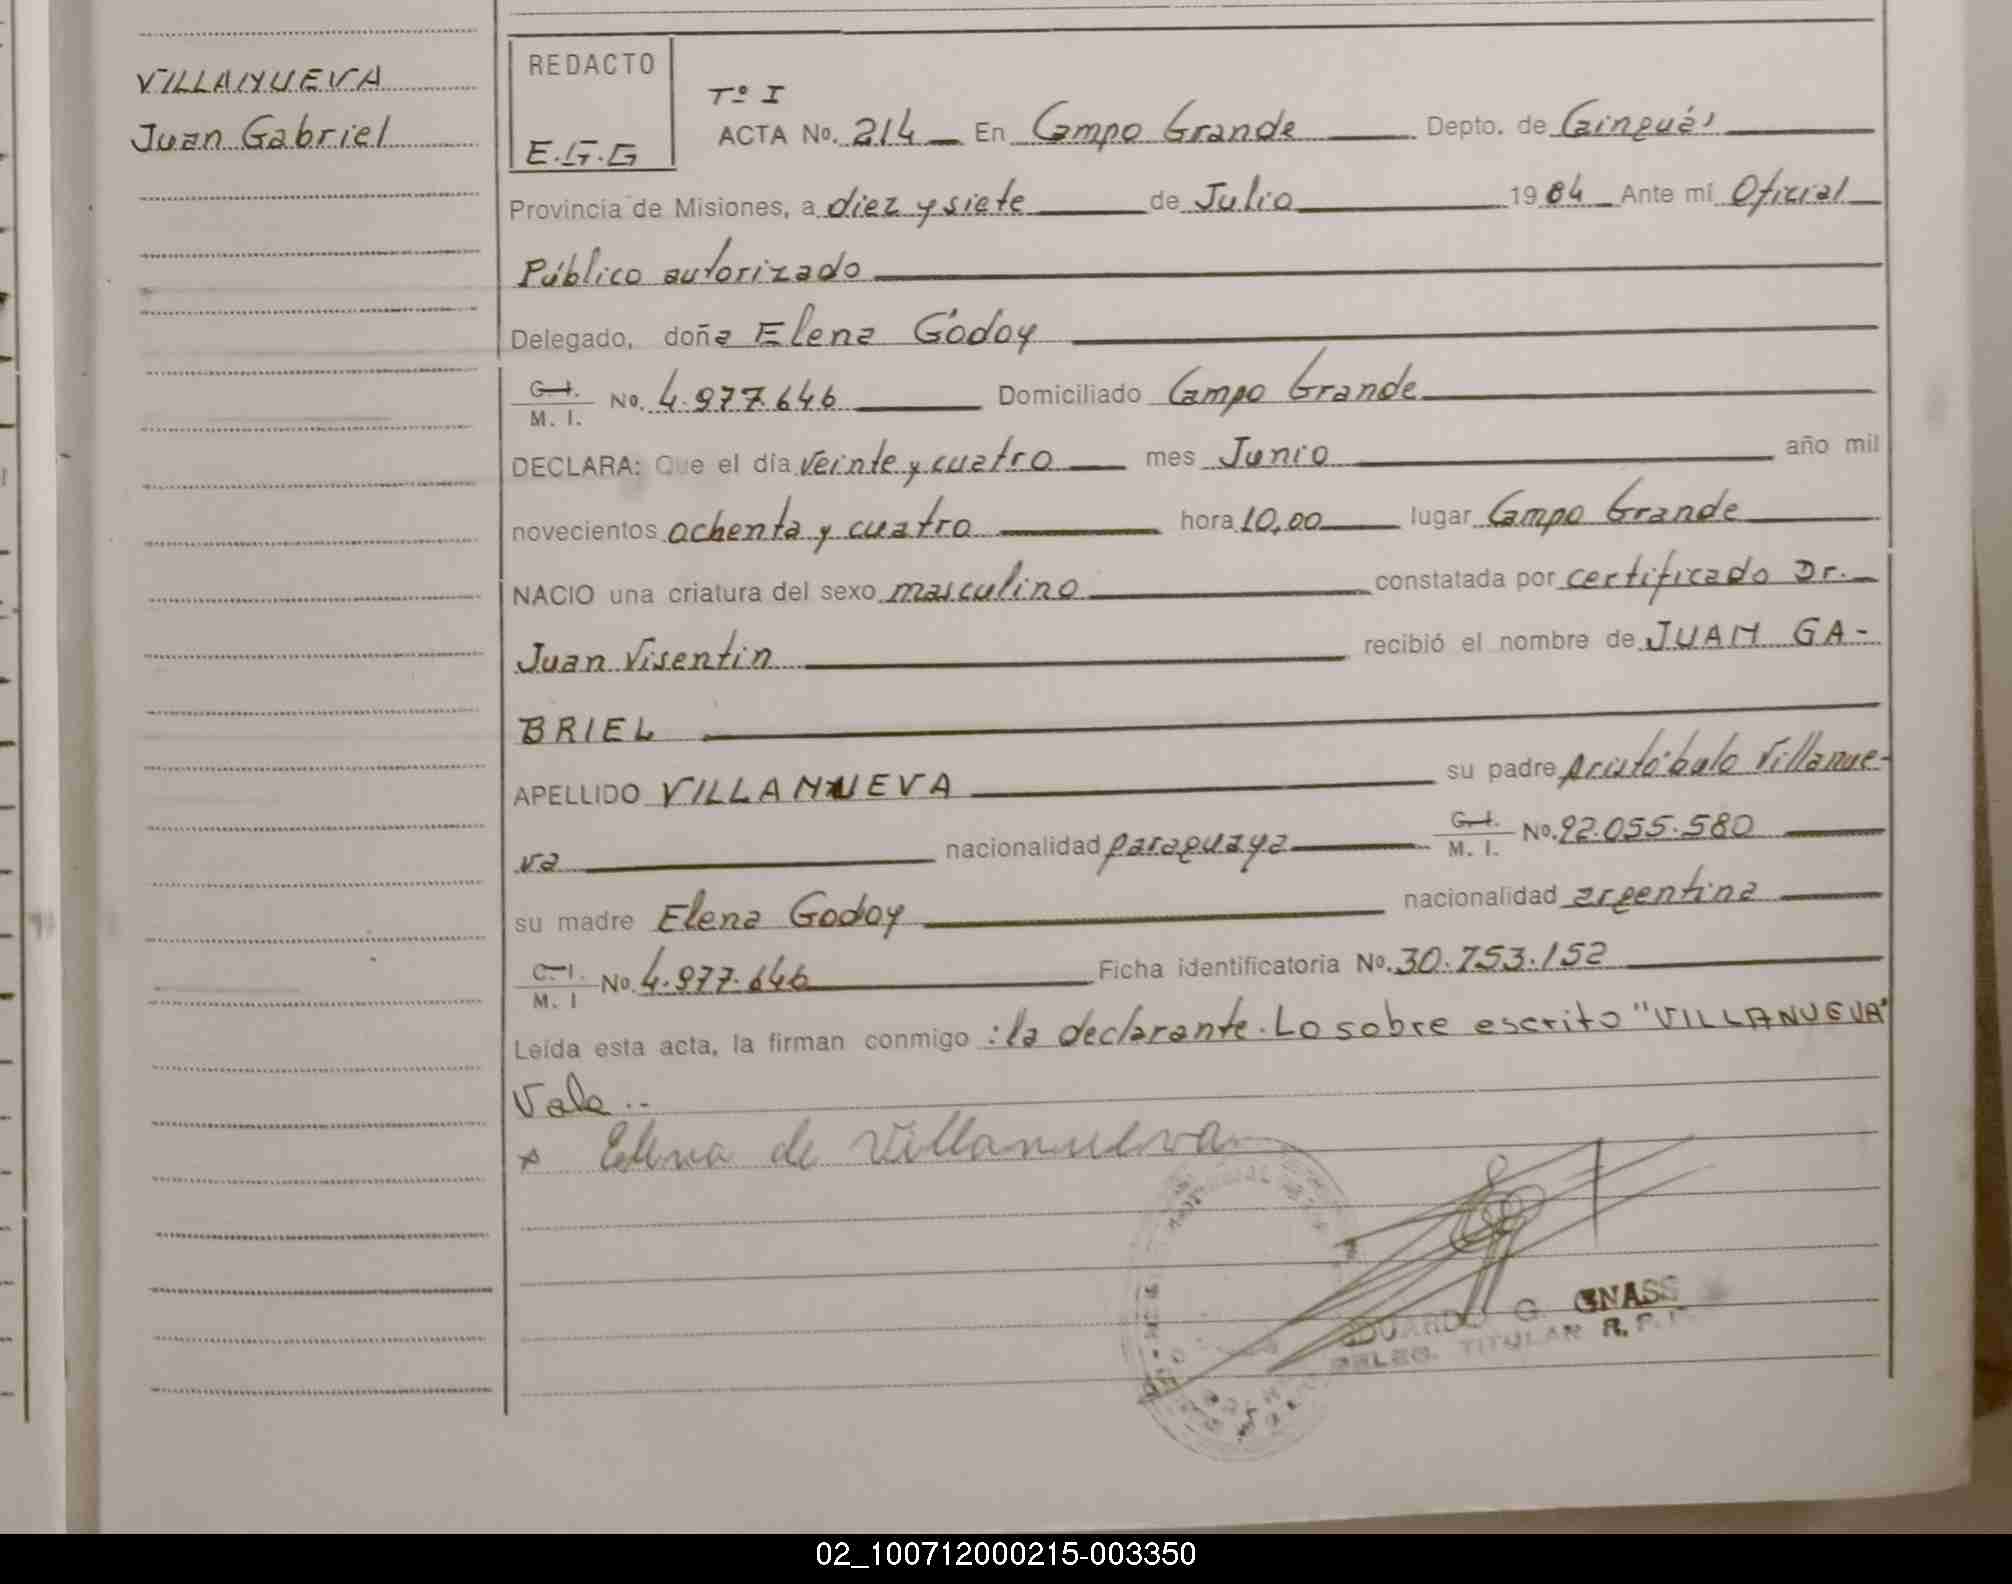 VILLANUEVA
Juan Gabriel
REDACTO
E.G.G
Tº I
ACTA No. 214 En Campo Grande Depto. de Cainguás
Provincia de Misiones, a diez y siete de Julio 1984 Ante mí Oficial
Público autorizado
Delegado, doña Elena Godoy
C.I. M. I. No. 4.977.646 Domiciliado Campo Grande
DECLARA: Que el día veinte y cuatro mes Junio año mil
novecientos ochenta y cuatro hora 10,00 lugar Campo Grande
NACIO una criatura del sexo masculino constatada por certificado Dr.
Juan Visentin recibió el nombre de JUAN GA-
BRIEL
APELLIDO VILLANUEVA su padre Aristóbulo Villanue-
va nacionalidad paraguaya C.I. M. I. No. 92.055.580
su madre Elena Godoy nacionalidad argentina
C.I. M. I No. 4.977.646 Ficha identificatoria No. 30.753.152
Leída esta acta, la firman conmigo : la declarante. Lo sobre escrito "VILLANUEVA"
Vale..
x Elena de Villanueva
EDUARDO G. GNASS
DELEG. TITULAR R. P.
02_100712000215-003350